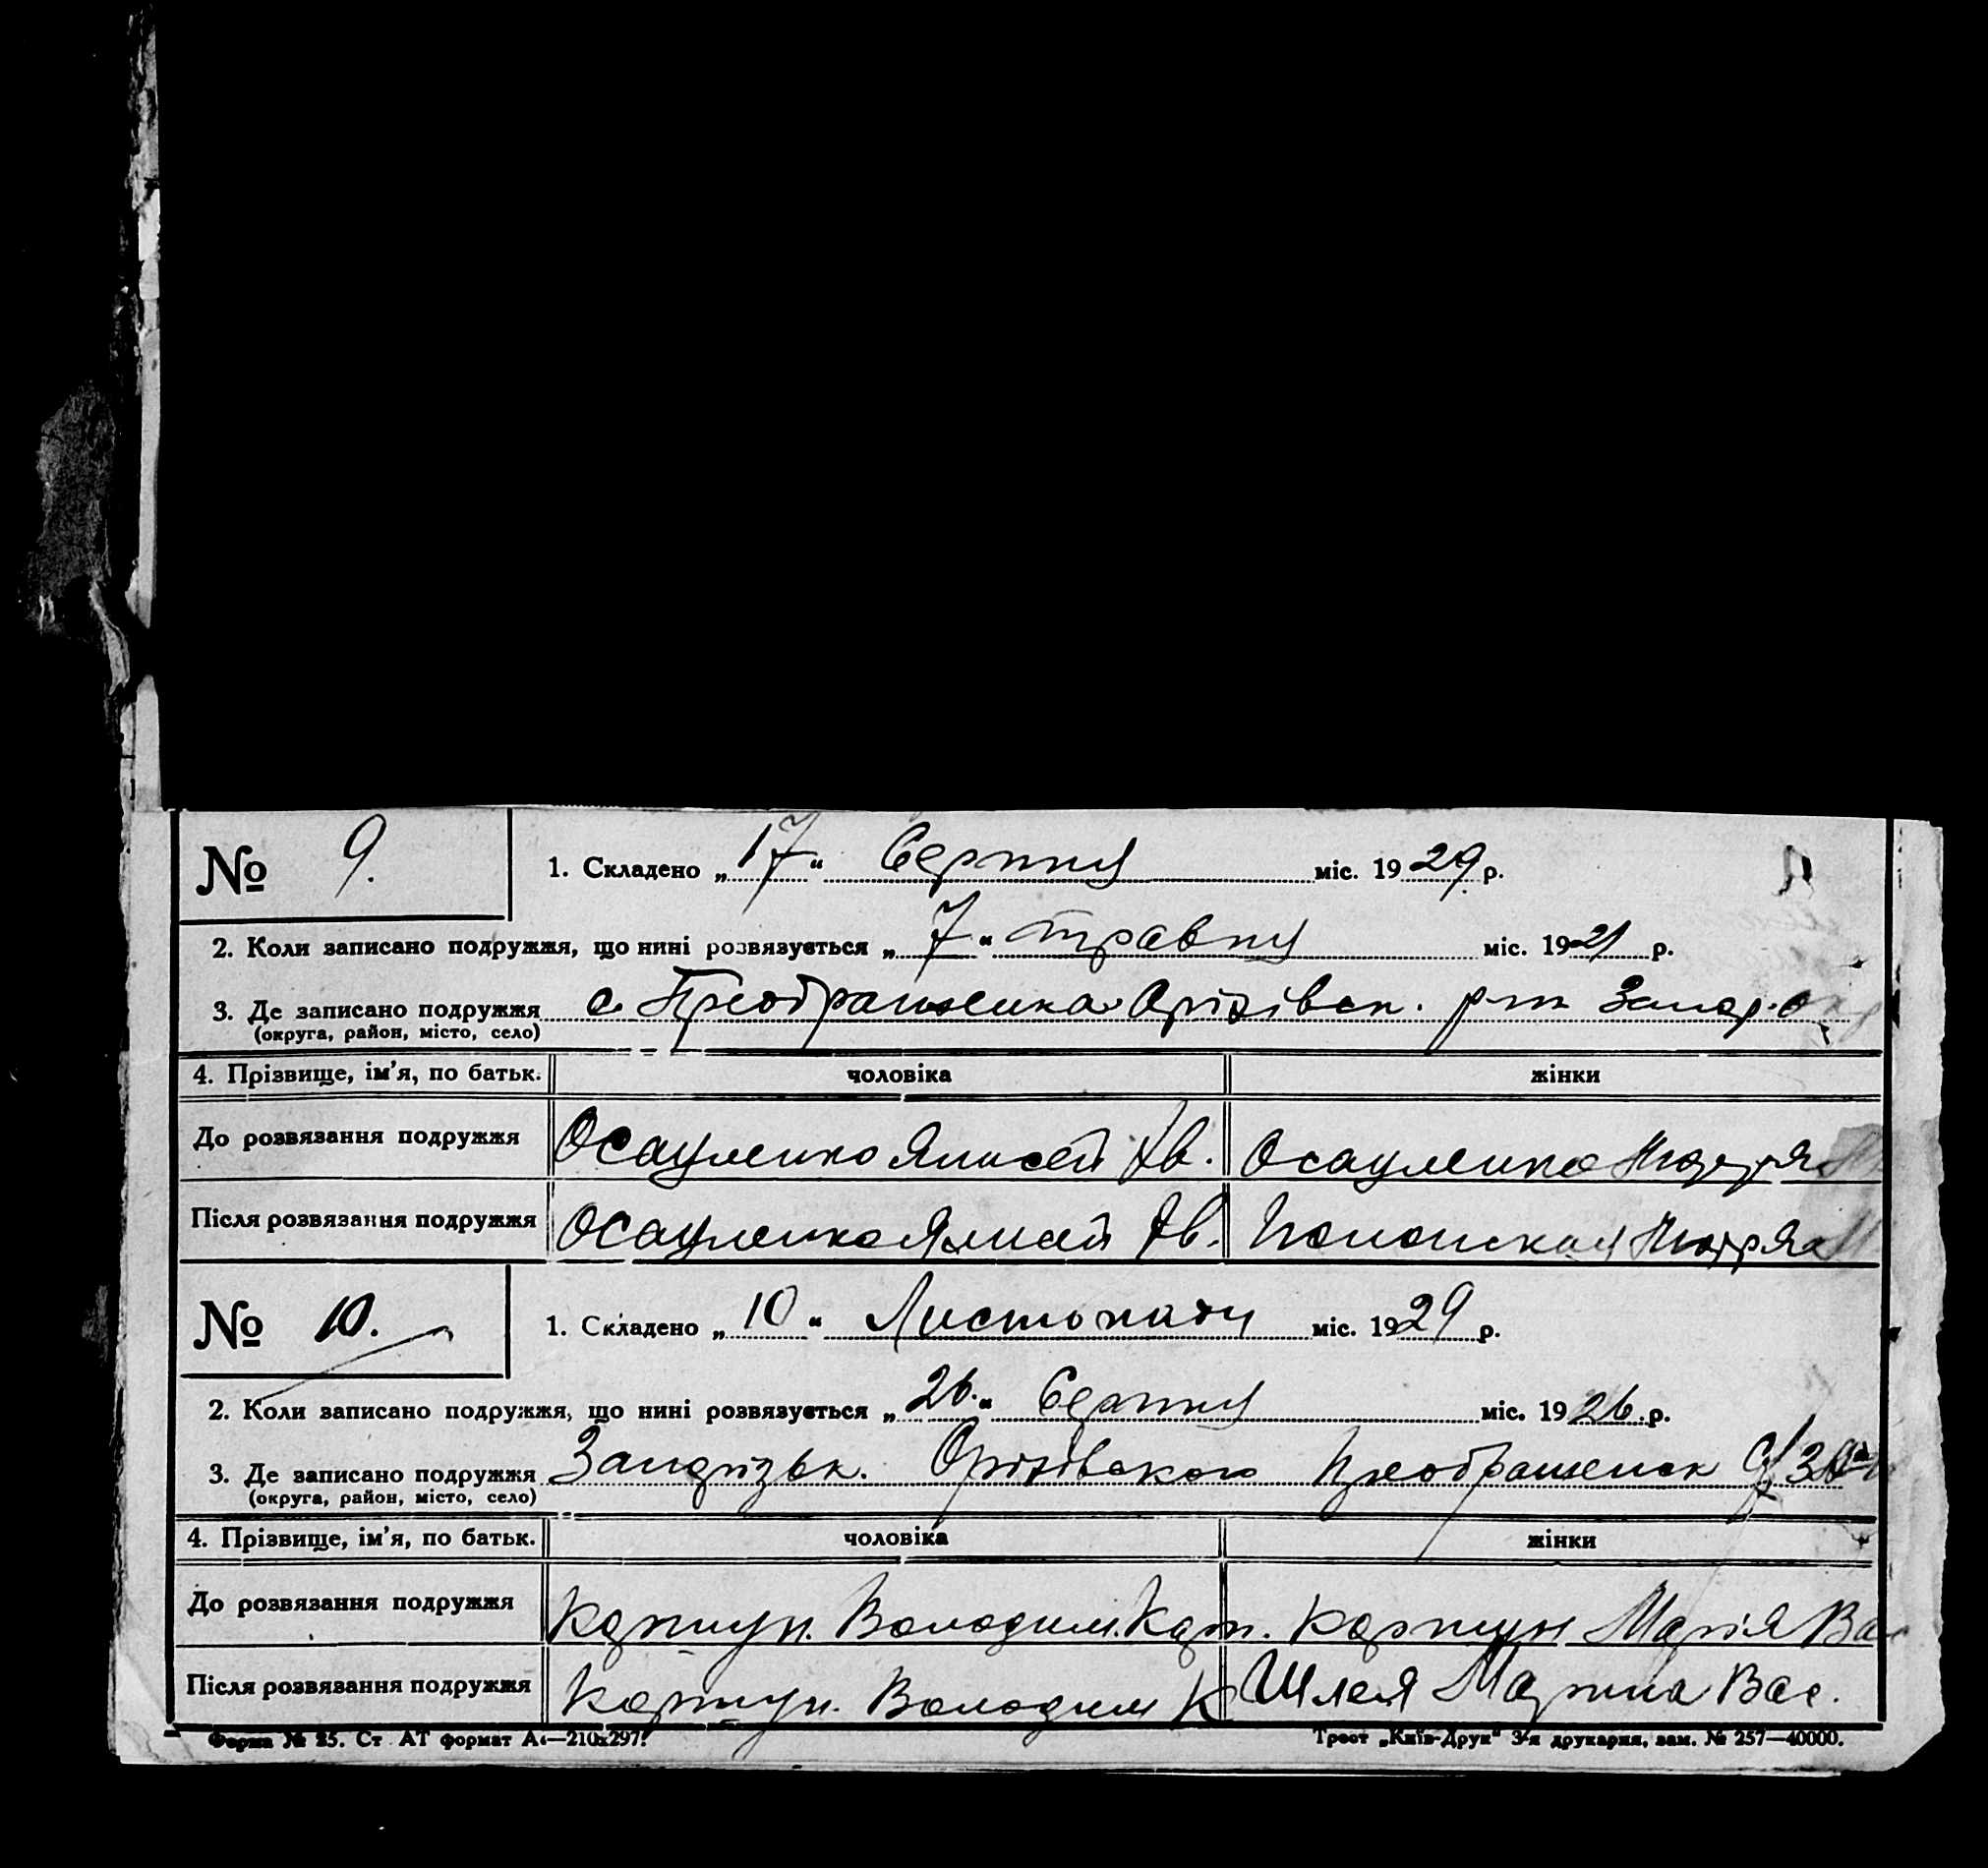 № 9. 1. Складено „17“ Серпня міс. 1929 р.
2. Коли записано подружжя, що нині розвязується „7“ травня міс. 1921 р.
3. Де записано подружжя с. Преображенка Оріхівськ. р-ну Запор. окр
(округа, район, місто, село)
4. Прізвище, ім’я, по батьк. чоловіка жінки
До розвязання подружжя Осауленко Ав. Осауленко
Після розвязання подружжя Осауленко Ав.
№ 10. 1. Складено „10“ Листопаду міс. 1929 р.
2. Коли записано подружжя, що нині розвязується „26.“ Серпня міс. 1926 р.
3. Де записано подружжя Оріхівского Преображенск
(округа, район, місто, село)
4. Прізвище, ім’я, по батьк. чоловіка жінки
До розвязання подружжя Коршун. Володим. Коршун Марія Вас
Після розвязання подружжя Коршун. Володим К Шлея Вас.
Форма № 25. Ст АТ формат А4—210x297. Трест „Київ-Друк“ 3-я друкарня, зам. № 257—40000.